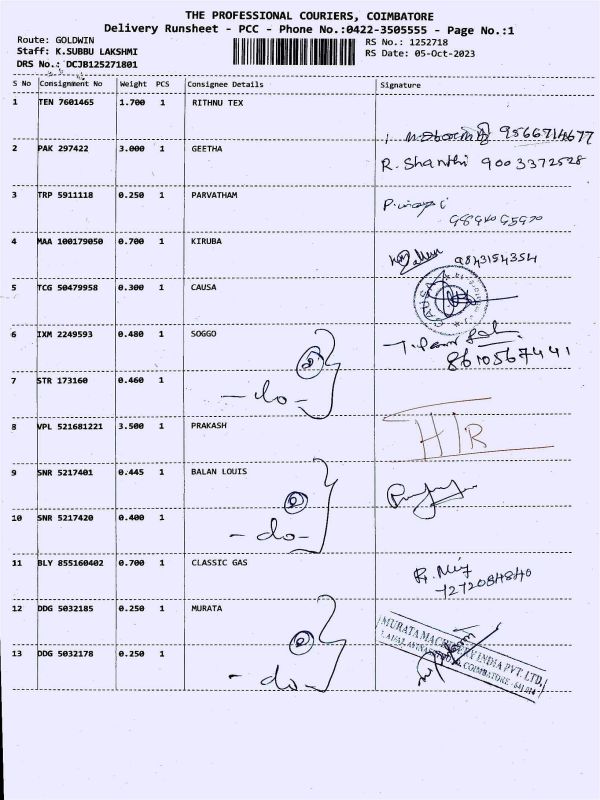 THE PROFESSIONAL COURIERS, COIMBATORE
Delivery Runsheet - PCC - Phone No.:0422-3505555 - Page No.:1
Route: GOLDWIN
RS No.: 1252718
Staff: K.SUBBU LAKSHMI
RS Date: 05-Oct-2023
DRS No.: DCJB125271801
S No Consignment No Weight PCS Consignee Details Signature
1 TEN 7601465 1.700 1 RITHNU TEX
9566714677
2 PAK 297422 3.000 1 GEETHA R. Shanthi 9003372528
3 TRP 5911118 0.250 1 PARVATHAM
4 MAA 100179050 0.700 1 KIRUBA 9843154354
5 TCG 50479958 0.300 1 CAUSA CAUSA
6 IXM 2249593 0.480 1 SOGGO
8610567441
7 STR 173160 0.460 1 -do-
8 VPL 521681221 3.500 1 PRAKASH H/R
9 SNR 5217401 0.445 1 BALAN LOUIS
10 SNR 5217420 0.400 1 -do-
11 BLY 855160402 0.700 1 CLASSIC GAS
7272084840
12 DDG 5032185 0.250 1 MURATA
MURATA MACHINERY INDIA PVT. LTD.
COIMBATORE - 641 014
13 DDG 5032178 0.250 1 -do-